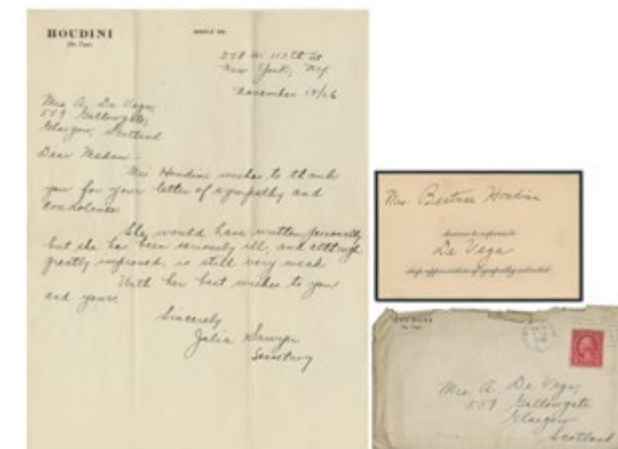 HOUDINI
278 W. 113th St
New York, NY
November 19/26
Mrs A. De Vega,
559 Gallowgate,
Glasgow, Scotland
Dear Madam -
Mrs Houdini wishes to thank
you for your letter of sympathy and
condolence.
She would have written personally
but she has been seriously ill, and although
greatly improved, is still very weak
With her best wishes to you
and yours,
Sincerely
Julia Sawyer
Secretary
Mrs. Beatrice Houdini
De Vega
deep appreciation of sympathy extended
HOUDINI
Mrs. A. De Vega,
559 Gallowgate
Glasgow
Scotland